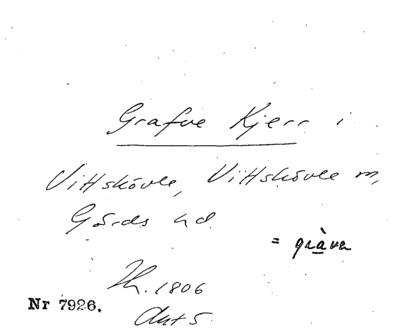 Grafve Kjerr i
Vittskövle, Vittskövle sn,
Gärds hd.
= gràva
Nr 7926.
1806
Akt 5